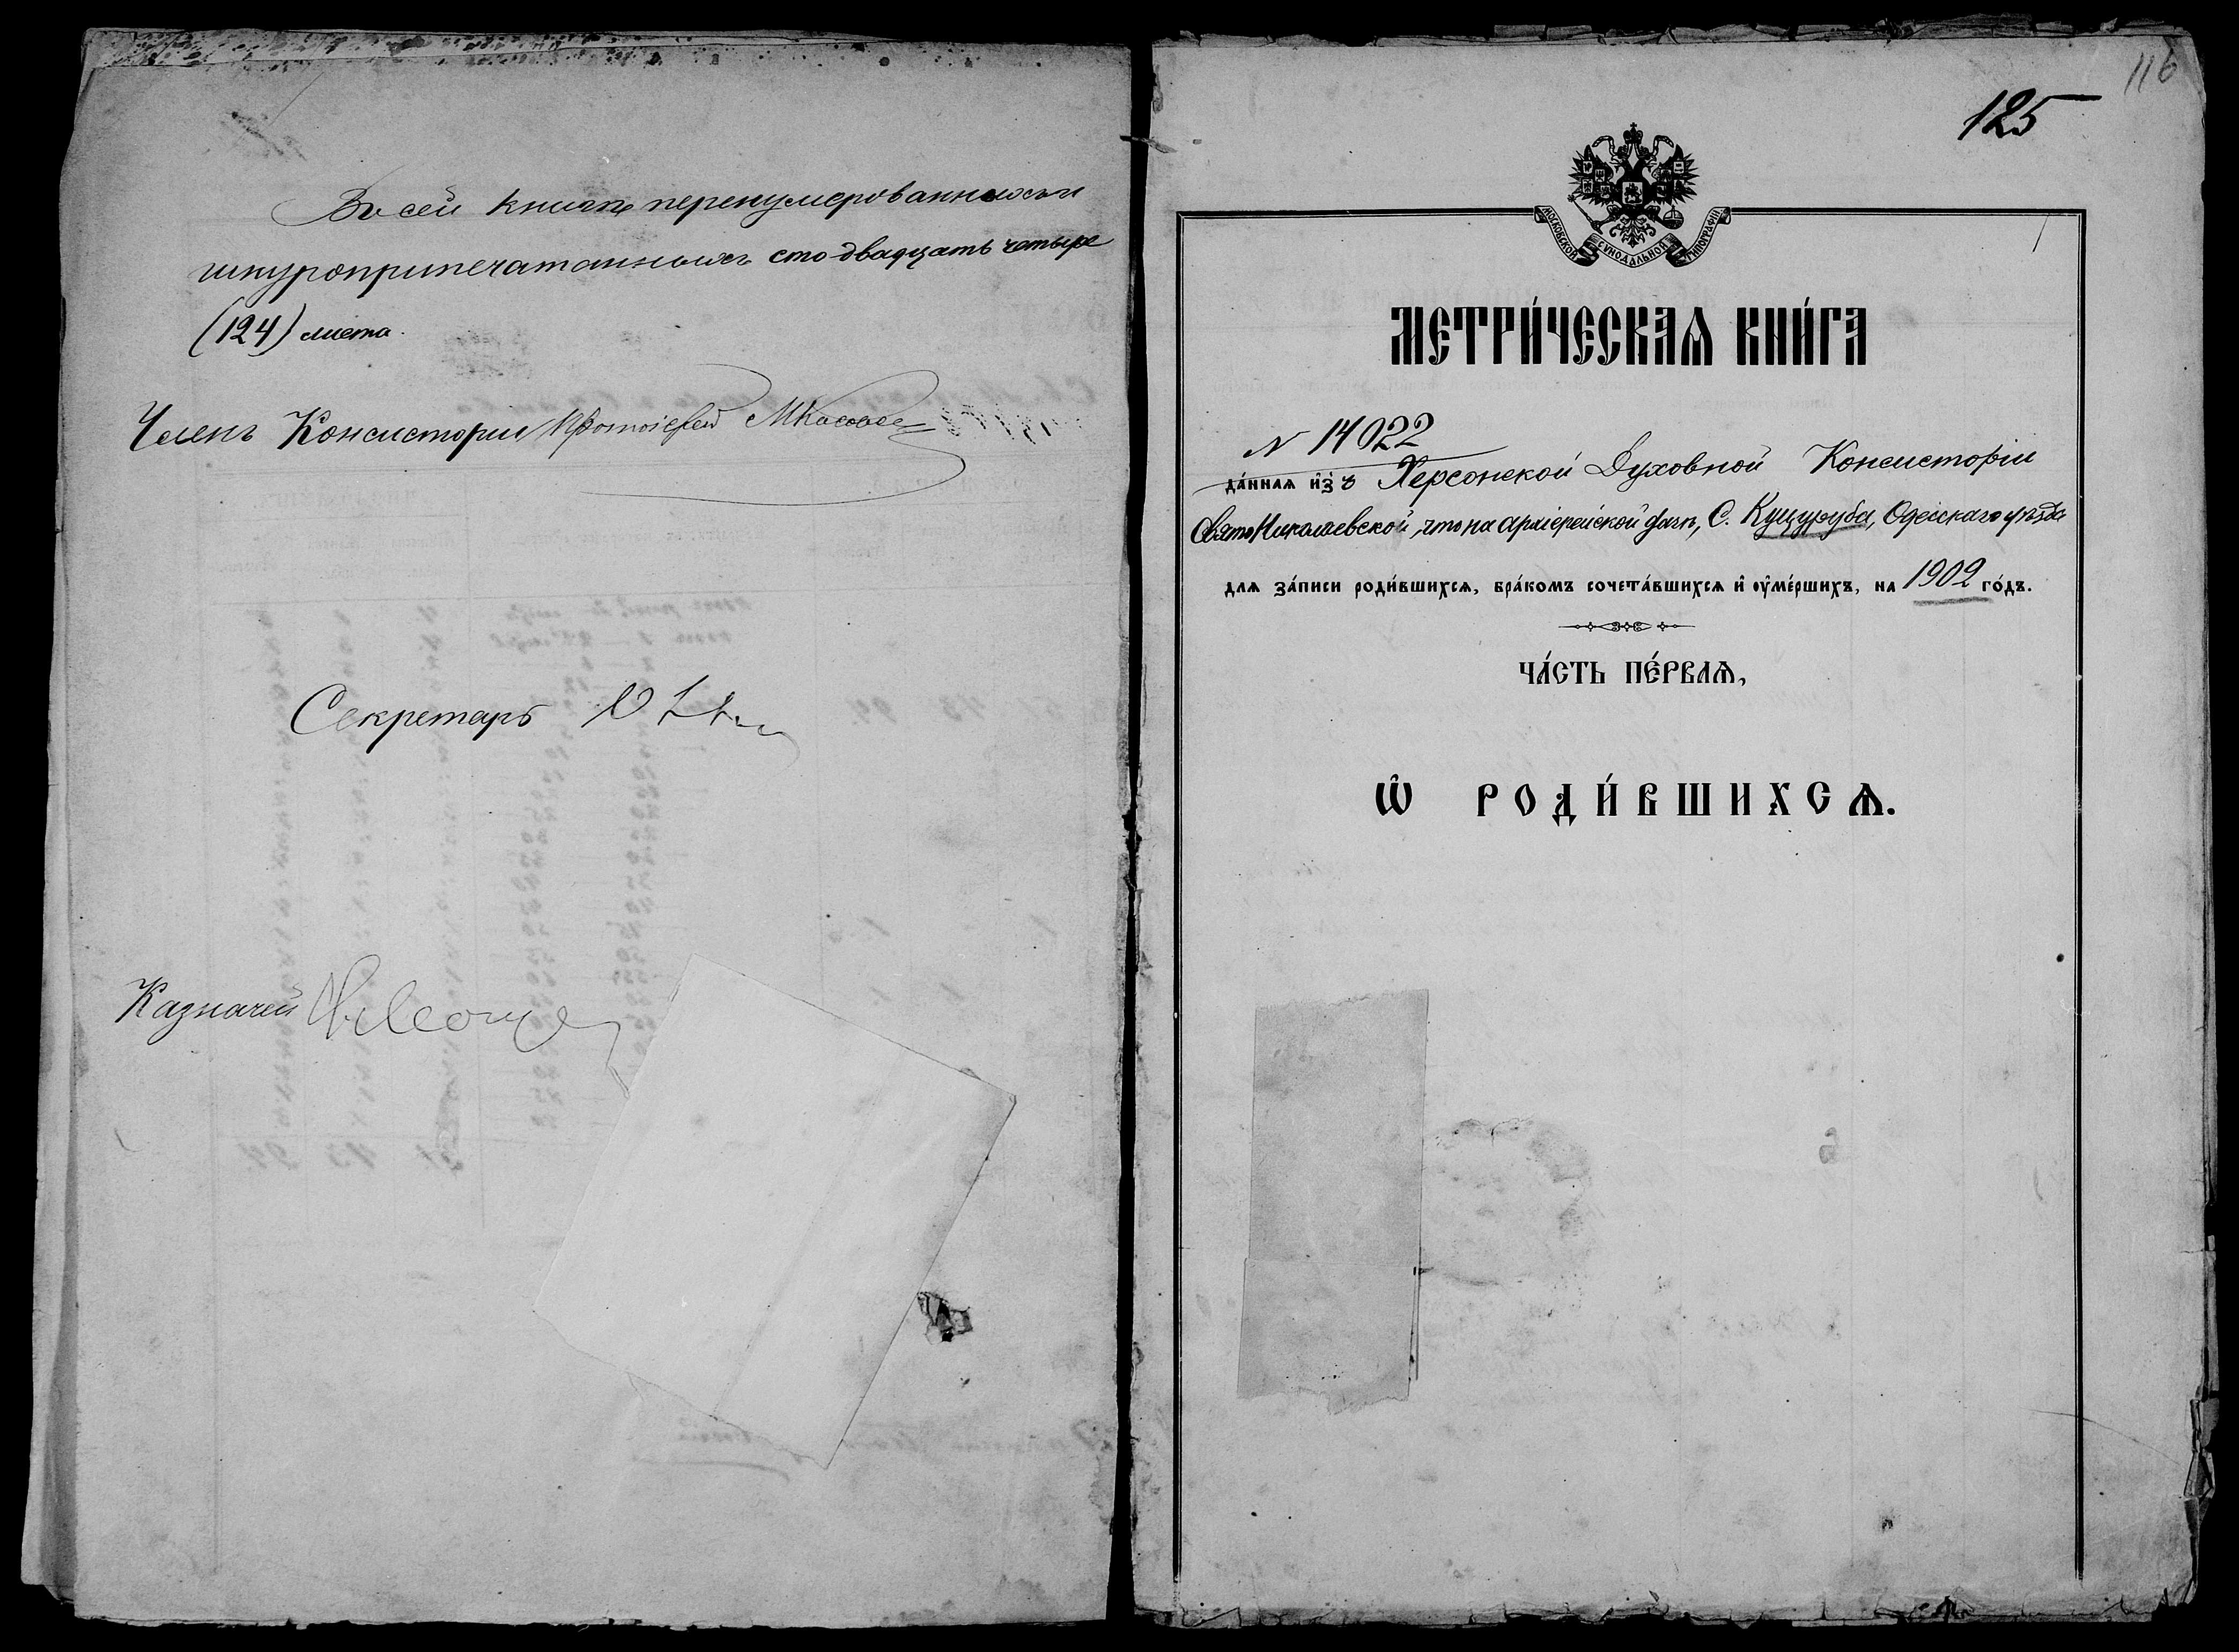 Въ сей книгѣ перенумерованныхъ и
шнуроприпечатанныхъ сто двадцать четыре
(124) листа.
Членъ Консисторіи Протоіерей
Секретарь
Казначей
116
125
МОСКОВСКОЙ СѴНОДАЛЬНОЙ ТИПОГРАФІИ
МЕТРИ́ЧЕСКАѦ КНИ́ГА
N 14022
да́ннаѧ и҆зъ Херсонской Духовной Консисторіи
Свято Николаевской, что на архіерейской дачѣ, С. Куцуруба, Одесскаго уѣзда
длѧ за́писи роди́вшихсѧ, бра́комъ сочета́вшихсѧ и҆ ᲂу҆ме́ршихъ, на 1902 го́дъ.
ЧА́СТЬ ПЕ́РВАѦ,
Ѽ РОДИ́ВШИХСѦ.